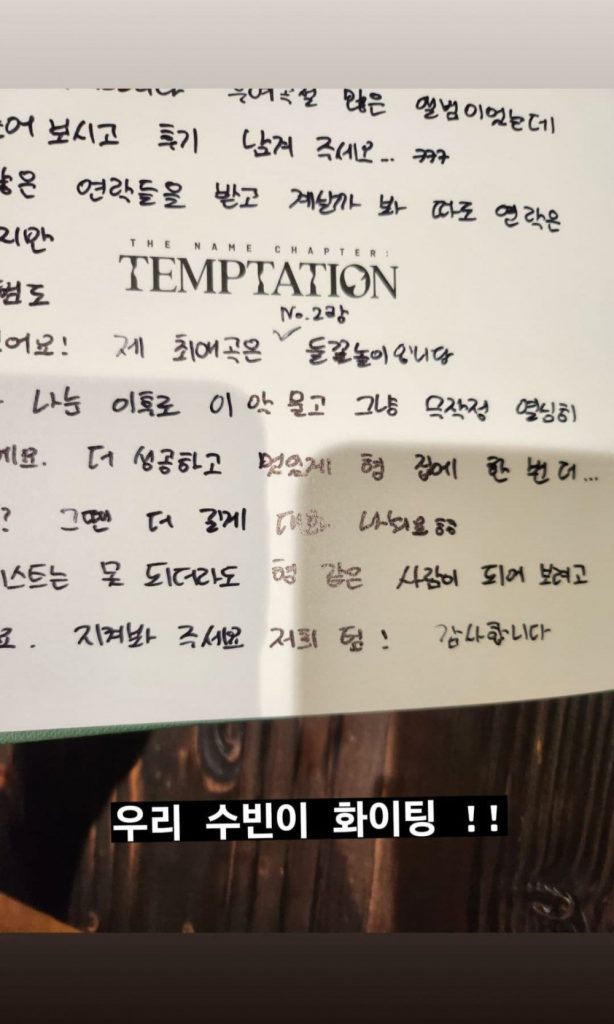 많은 앨범이었는데
보시고 후기 남겨 주세요... ㅋㅋㅋ
연락들을 받고 계실까 봐 따로 연락은
지만
THE NAME CHAPTER:
TEMPTATION
범도
No.2랑
어요! 제 최애곡은 ✓ 들꽃놀이입니다
나눈 이후로 이 악 물고 그냥 무작정 열심히
게요. 더 성공하고 멋있게 형 집에 한 번 더...
? 그땐 더 길게 대화 나눠요 형
스트는 못 되더라도 형 같은 사람이 되어 보려고
요. 지켜봐 주세요 저희 팀! 감사합니다
우리 수빈이 화이팅 !!